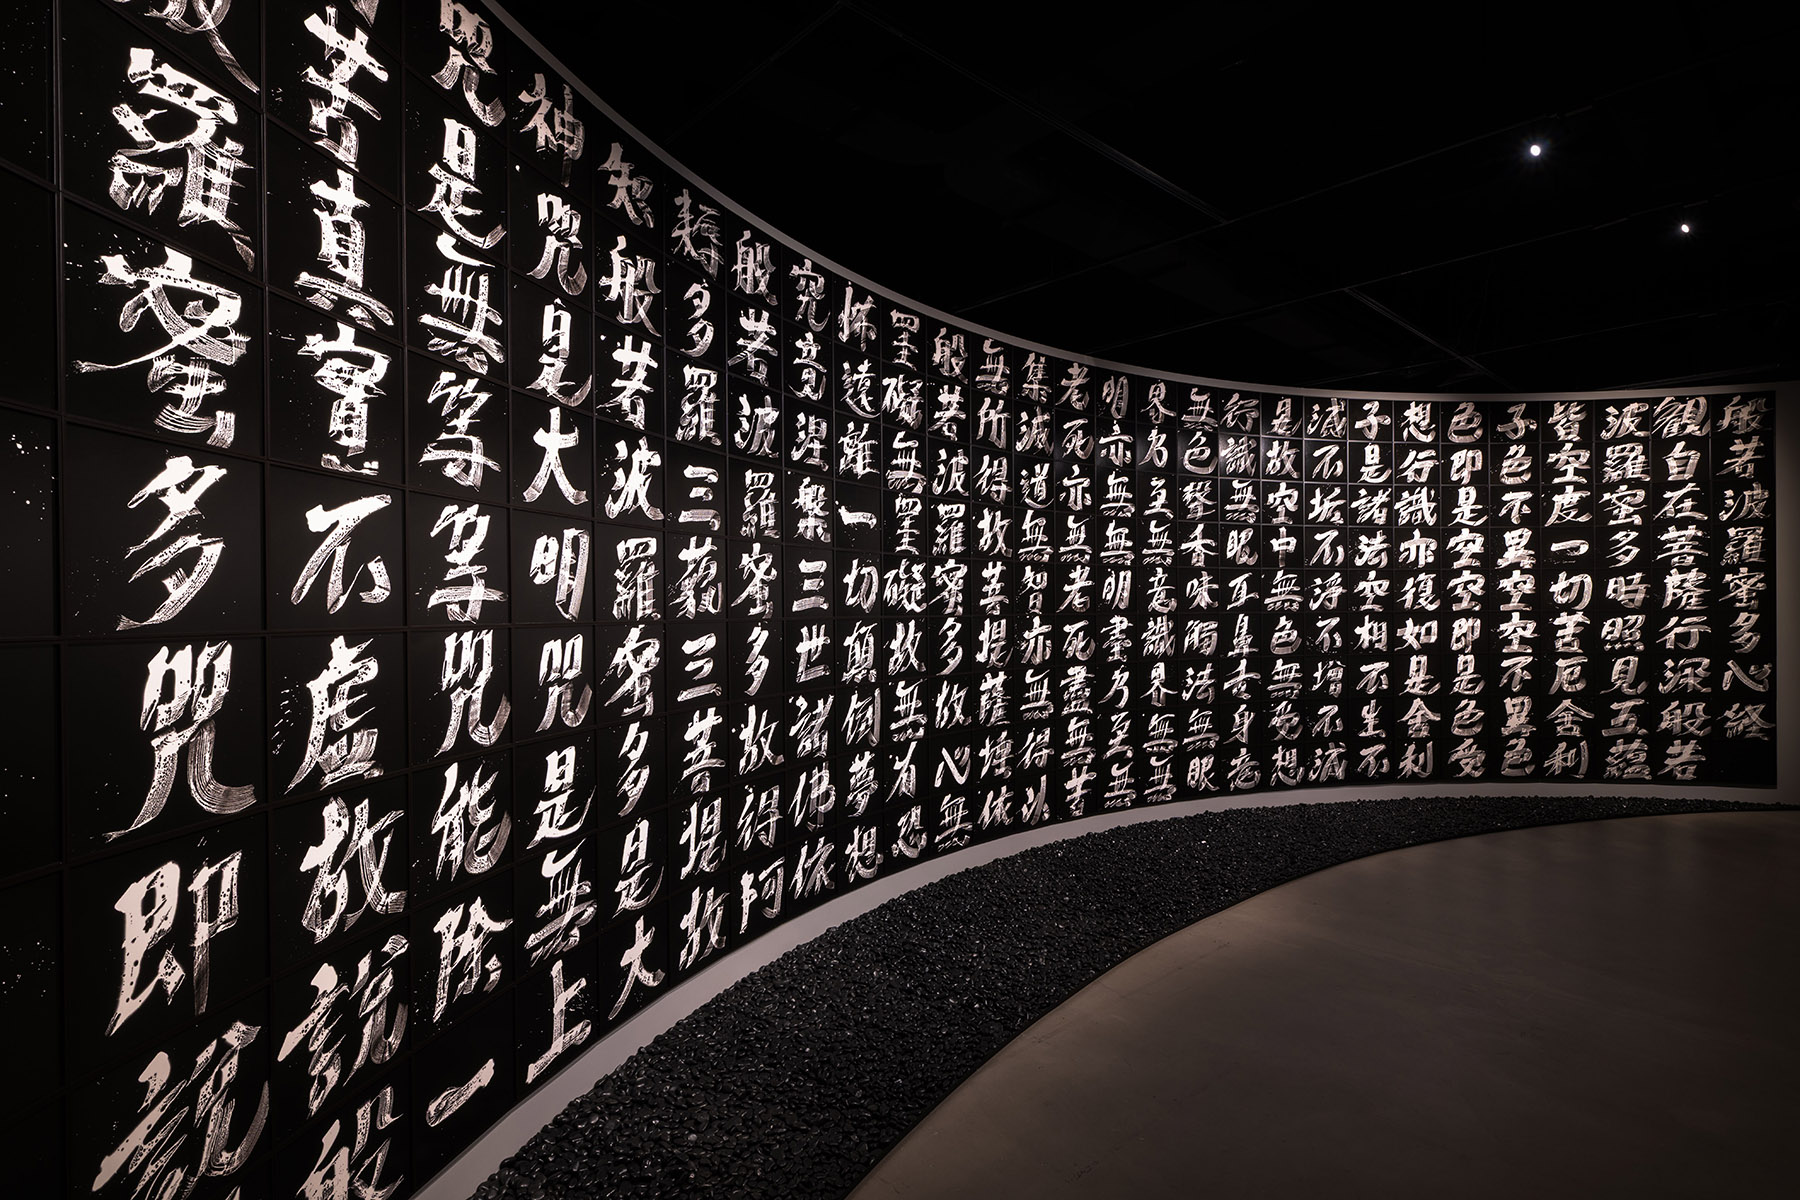 般若波羅蜜多心経
觀自在菩薩行深般若
波羅蜜多時照見五蘊
皆空度一切苦厄舍利
子色不異空空不異色
色即是空空即是色受
想行識亦復如是舍利
子是諸法空相不生不
滅不垢不淨不增不減
是故空中無色無受想
行識無眼耳鼻舌身意
無色聲香味觸法無眼
界乃至無意識界無無
明亦無無明盡乃至無
老死亦無老死盡無苦
集滅道無智亦無得以
無所得故菩提薩埵依
般若波羅蜜多故心無
罣礙無罣礙故無有恐
怖遠離一切顛倒夢想
究竟涅槃三世諸佛依
般若波羅蜜多故得阿
耨多羅三藐三菩提故
知般若波羅蜜多是大
神咒是大明咒是無上
咒是無等等咒能除一
苦真實不虛故說般
羅蜜多咒即說